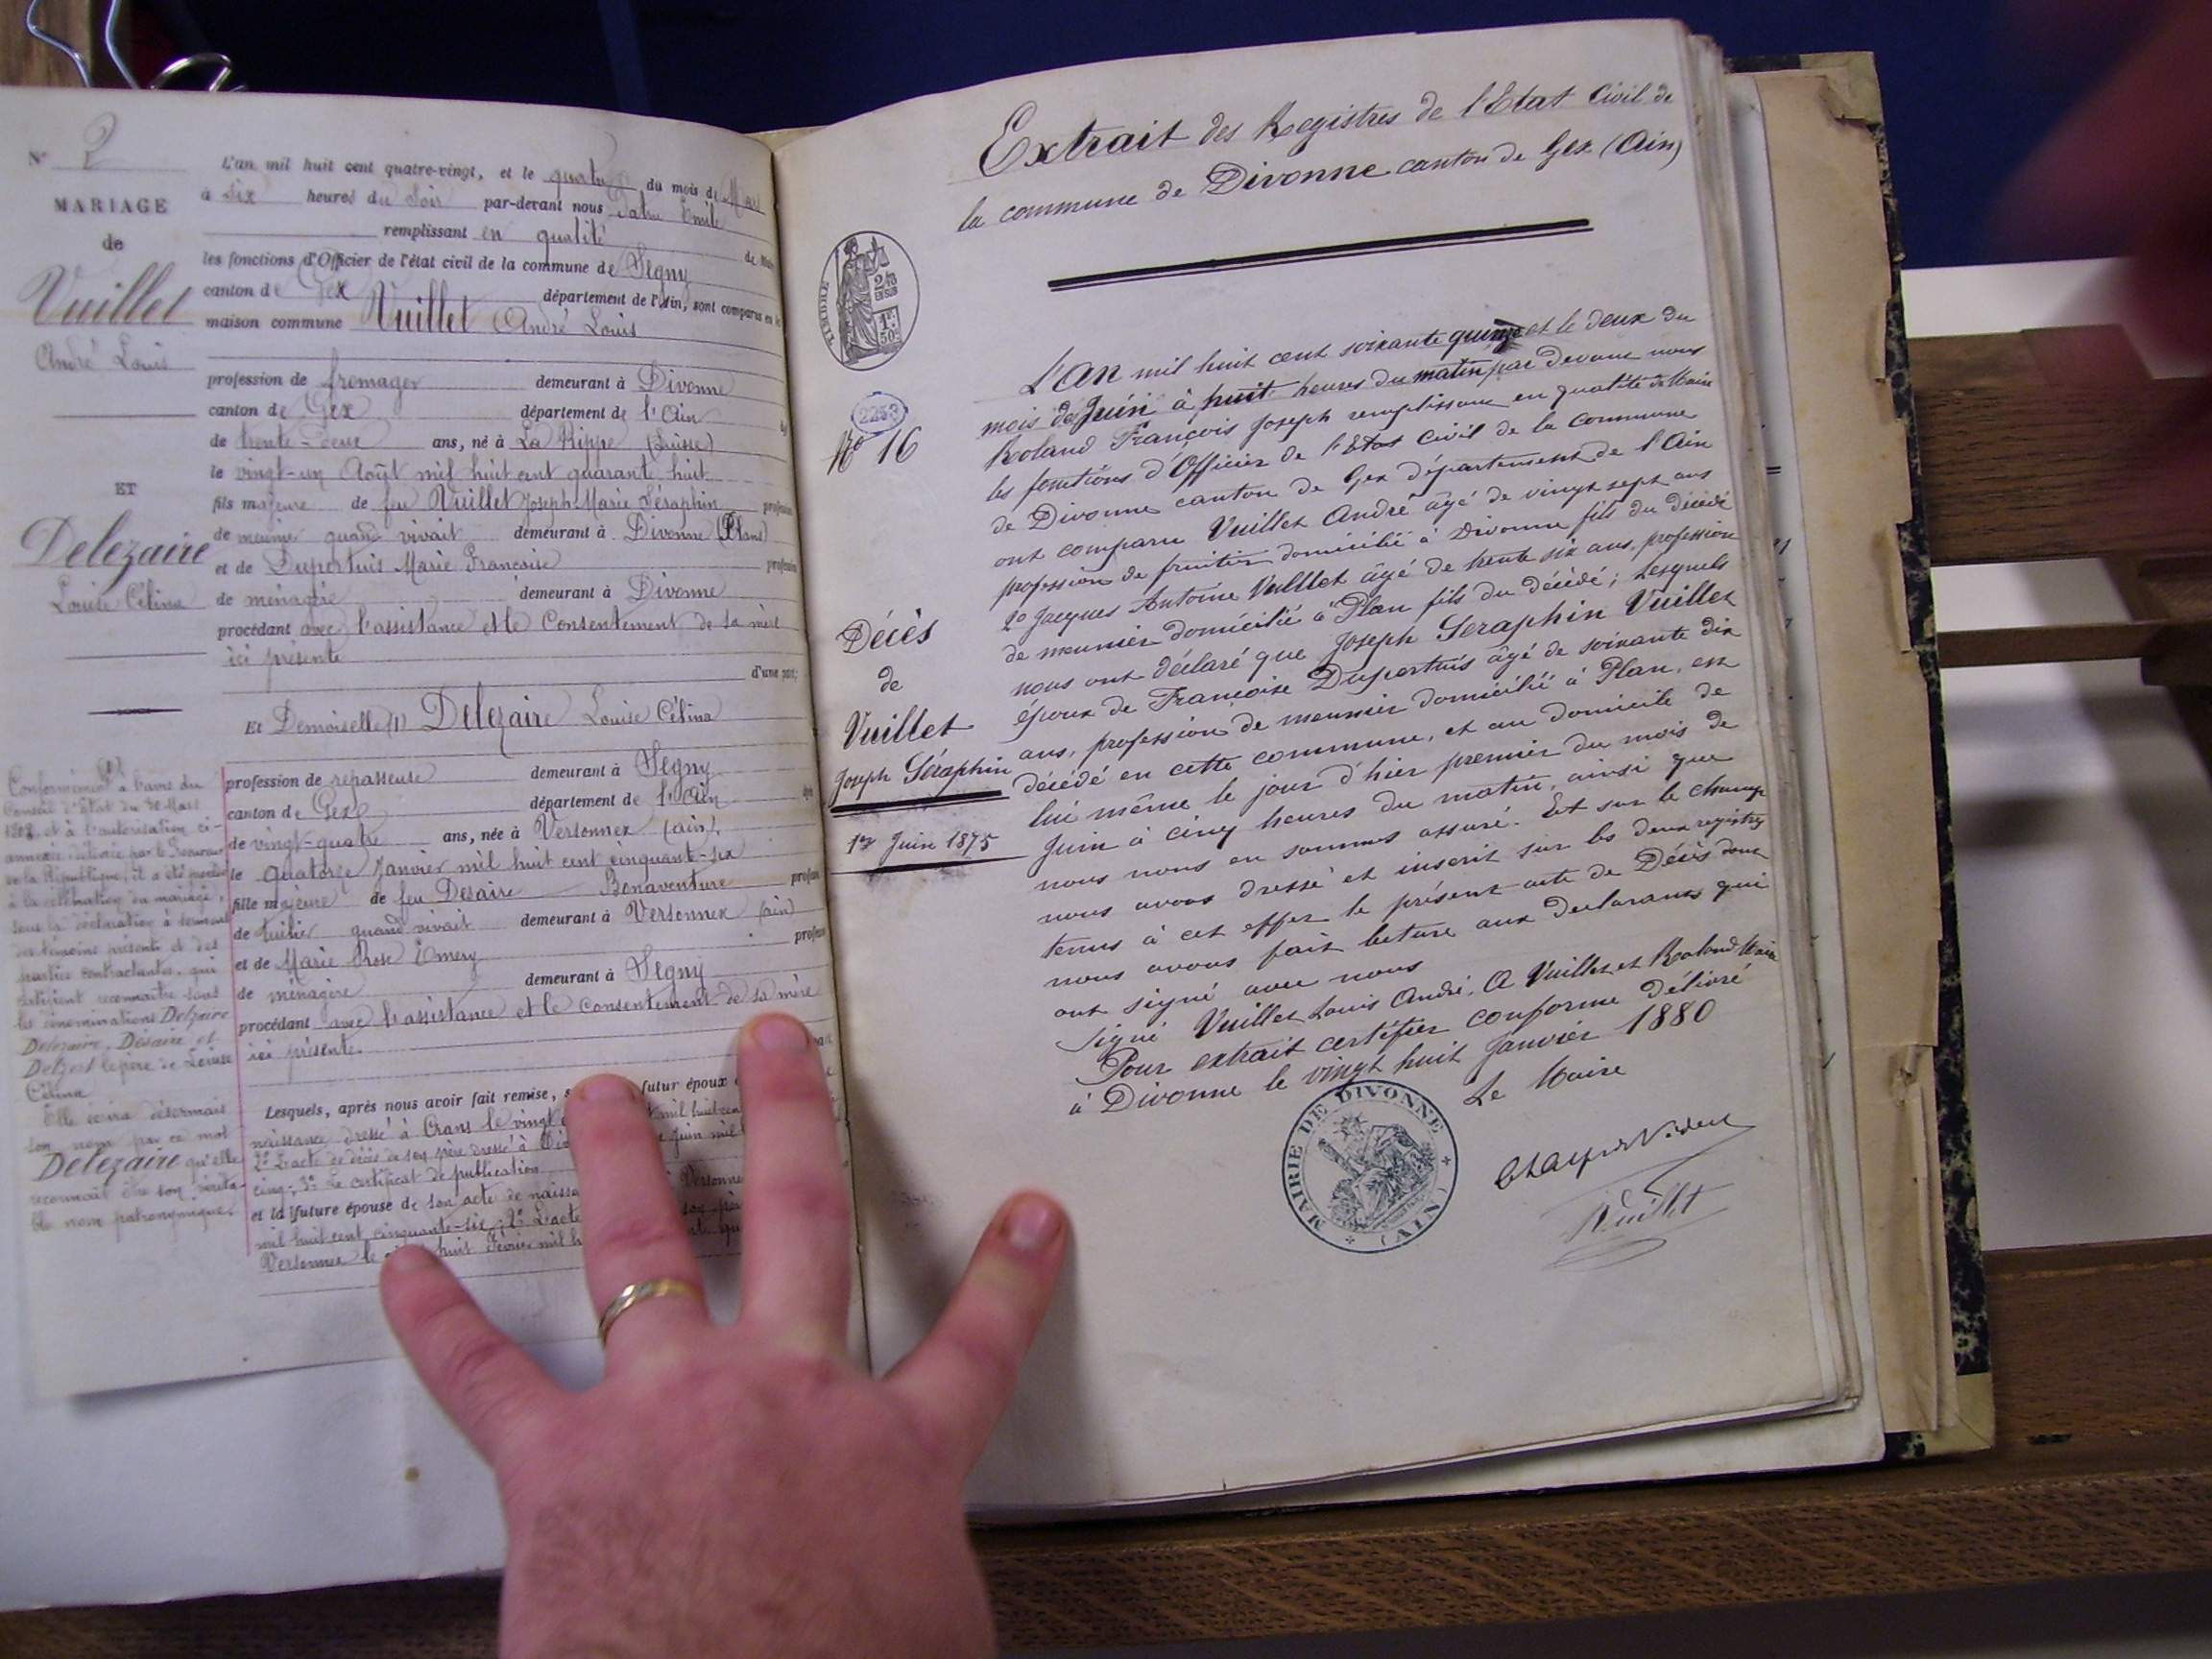 N° 2
MARIAGE
de
Vuillet
André Louis
ET
Delezaire
Louise Célina
L'an mil huit cent quatre-vingt, et le quatre du mois de Mars
à six heures du soir par-devant nous Emile
remplissant en qualité de
les fonctions d'Officier de l'état civil de la commune de Segny
canton de Gex département de l'Ain, sont comparus en la
maison commune Vuillet André Louis
profession de fromager demeurant à Divonne
canton de Gex département de l'Ain
de trente-deux ans, né à La Rippe (Suisse)
le vingt-un Août mil huit cent quarante huit
fils majeure de feu Vuillet Joseph Marie Séraphin
de meunier quand vivait demeurant à Divonne (Plan)
et de Dupertuis Marie Francoise
de ménagère demeurant à Divonne
procédant avec l'assistance et le Consentement de sa mère
ici présente
d'une part;
Et Demoiselle (1) Delezaire Louise Célina
profession de repasseuse demeurant à Segny
canton de Gex département de l'Ain
de vingt-quatre ans, née à Versonnex (ain)
le quatorze Janvier mil huit cent cinquante-six
fille majeure de feu Desaire Bonaventure
de tuilier quand vivait demeurant à Versonnex (ain)
et de Marie Rose Emery
de ménagère demeurant à Segny
procédant avec l'assistance et le consentement de sa mère
ici présente.
Lesquels, après nous avoir fait remise, futur époux
naissance dressé à Crans le vingt mil huit cent
2° L'acte de décès de son père dressé à Juin mil
cinq; 3° Le certificat de publication
et la future épouse de son acte de naissa Versonne
mil huit cent cinquante-six; 2° L'acte son père
Versonnex le huit Février mil
(1)
Conformément à l'avis du
Conseil d'Etat du 30 Mars
1808, et à l'autorisation ci-
annexée délivrée par le Procureur
de la République, il a été procédé
à la célébration du mariage,
sous la déclaration à serment
des témoins présents et des
parties contractantes, qui
certifient reconnaître sous
les dénominations Delzaire
Delezaire, Desaire et
le père de Louise
Célina
Elle écrira désormais
son nom par ce mot
Delezaire qu'elle
reconnait être son vérita-
ble nom patronymique.
Extrait des Registres de l'Etat Civil de
la commune de Divonne canton de Gex (Ain)
TIMBRE
2/10
EN SUS
1F.
50c
2253
N° 16
Décès
de
Vuillet
Joseph Séraphin
1er Juin 1875
L'An mil huit cent soixante quinze et le deux du
mois de Juin à huit heures du matin par devant nous
Roland François Joseph remplissant en qualité de Maire
les fonctions d'Officier de l'Etat Civil de la commune
de Divonne canton de Gex département de l'Ain
ont comparu Vuillet André âgé de vingt sept ans
profession de fruitier domicilié à Divonne fils du décédé
2° Jacques Antoine Vuillet âgé de trente six ans, profession
de meunier domicilié à Plan fils du décédé; Lesquels
nous ont déclaré que Joseph Seraphin Vuillet
époux de Françoise Dupertuis âgé de soixante dix
ans, profession de meunier domicilié à Plan, est
décédé en cette commune, et au domicile de
lui même le jour d'hier premier du mois de
Juin à cinq heures du matin, ainsi que
nous nous en sommes assuré. Et sur le champ
nous avons dressé et inscrit sur les deux registres
tenus à cet effet le présent acte de Décès dont
nous avons fait lecture aux declarants qui
ont signé avec nous
Signé Vuillet Louis André, A Vuillet et Roland Maire
Pour extrait certifier conforme Délivré
à Divonne le vingt huit Janvier 1880
Le Maire
MAIRIE DE DIVONNE
(AIN)
Vuillet